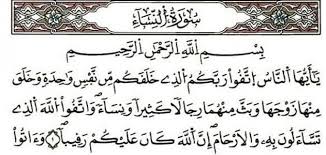 سُورَةُ النِّسَاءِ
بِسْمِ اللَّهِ الرَّحْمَٰنِ الرَّحِيمِ
يَٰٓأَيُّهَا النَّاسُ اتَّقُوا۟ رَبَّكُمُ الَّذِے خَلَقَكُم مِّن نَّفْسٍ وَٰحِدَةٍ وَخَلَقَ
مِنْهَا زَوْجَهَا وَبَثَّ مِنْهُمَا رِجَالًا كَثِيرًا وَنِسَآءً ۖ وَاتَّقُوا۟ اللَّهَ الَّذِے
تَسَّآءَلُونَ بِهِۦ وَالْأَرْحَامَ ۖ إِنَّ اللَّهَ كَانَ عَلَيْكُمْ رَقِيبًا ۝١ وَءَاتُوا۟